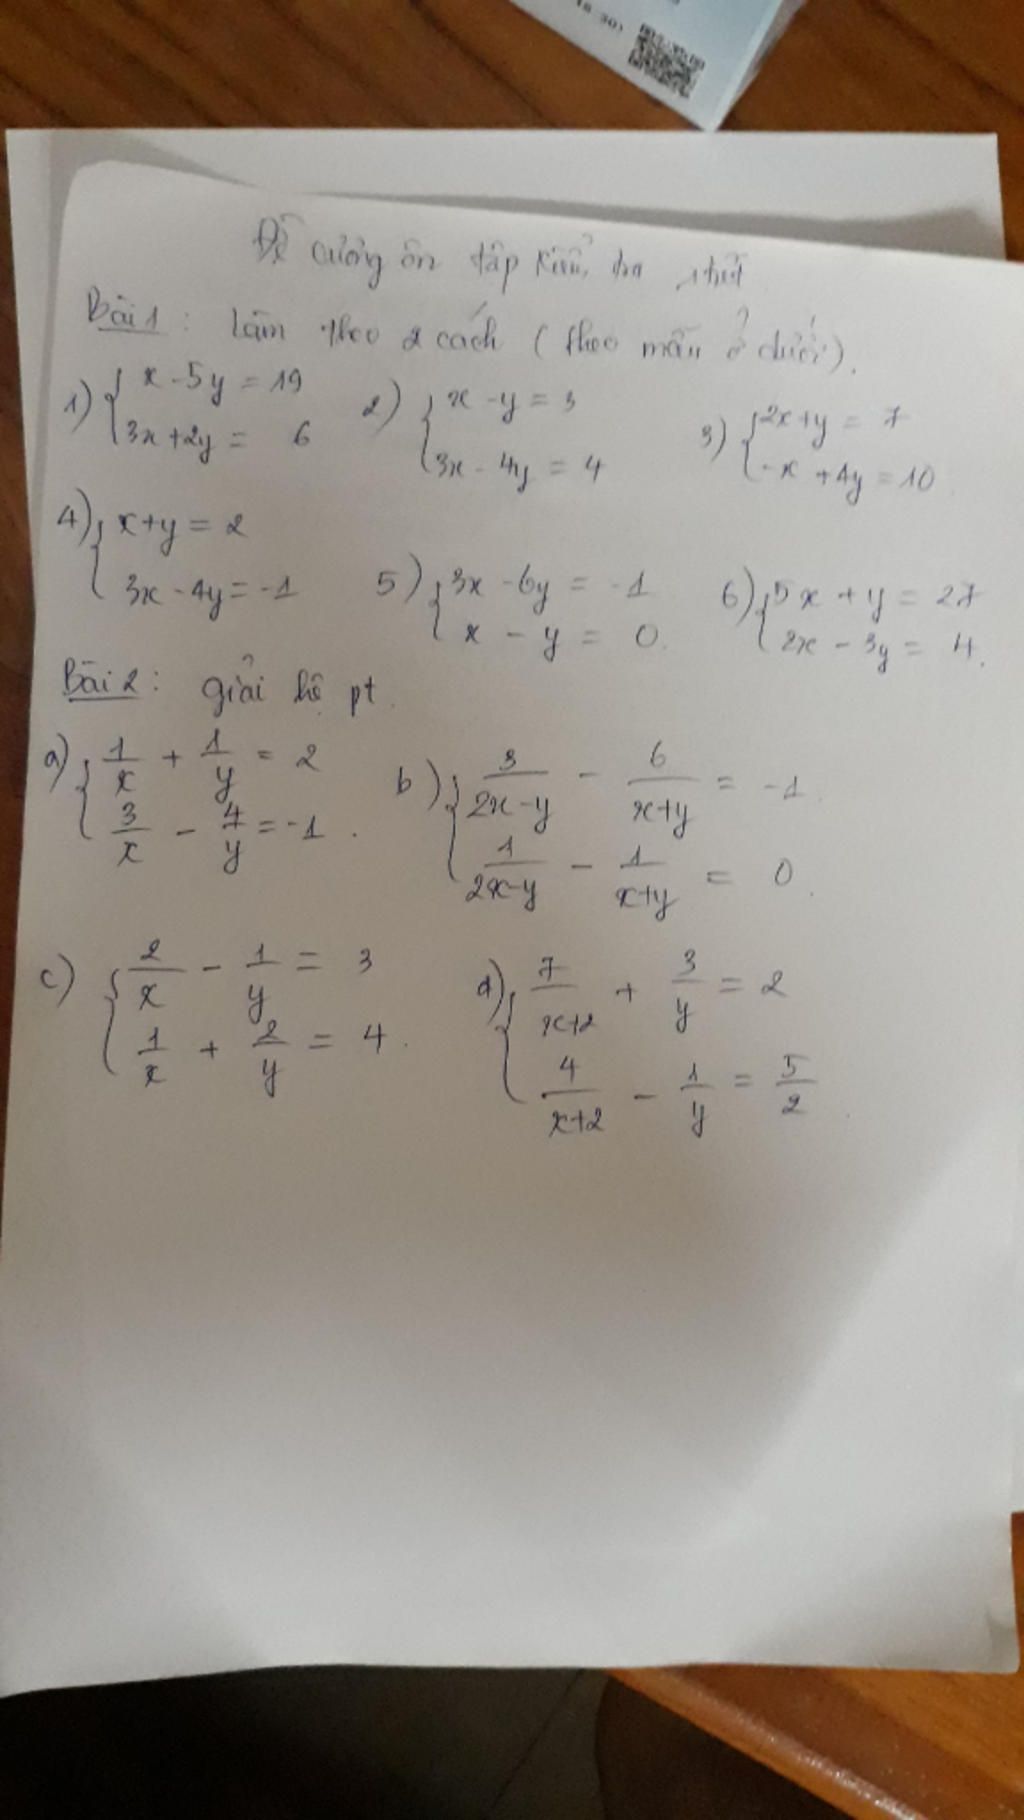 Đề cương ôn tập kiểm tra
Bài 1: Làm theo 2 cách (theo mẫu ở dưới).
1) { x - 5y = 19
3x + 2y = 6
2) { x - y = 3
3x - 4y = 4
3) { 2x + y = 7
-x + 4y = 10
4) { x + y = 2
3x - 4y = -1
5) { 3x - 6y = -1
x - y = 0.
6) { 5x + y = 27
2x - 3y = 4.
Bài 2: giải hệ pt.
a) { 1/x + 1/y = 2
3/x - 4/y = -1.
b) { 3/(2x-y) - 6/(x+y) = -1.
1/(2x-y) - 1/(x+y) = 0.
c) { 2/x - 1/y = 3
1/x + 2/y = 4.
d) { 7/(x+2) + 3/y = 2
4/(x+2) - 1/y = 5/2.